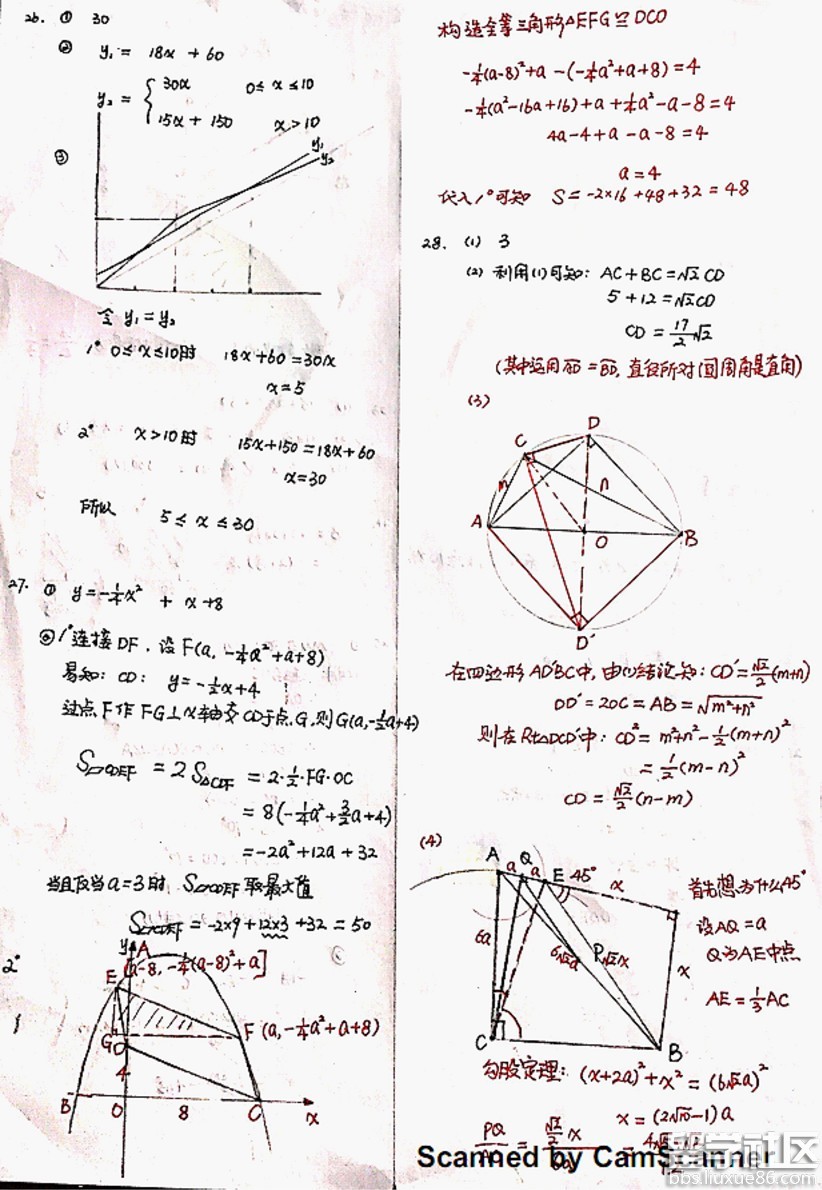 26. ① 30
② y₁ = 18x + 60
y₂ = { 30x 0≤x≤10
15x + 150 x>10
③
y₁
y₂
令 y₁=y₂
1° 0≤x≤10时 18x+60=30x
x=5
2° x>10时 15x+150=18x+60
x=30
所以 5≤x≤30
27. ① y=-¼x² + x+8
② 1° 连接DF, 设F(a, -¼a²+a+8)
易知: CD: y=-½x+4
过点F作FG⊥x轴交CD于点G, 则G(a,-½a+4)
S▱CDEF = 2S△CDF = 2·½·FG·OC
= 8(-¼a²+3/2a+4)
= -2a²+12a+32
当且仅当a=3时 S▱CDEF取最大值
S▱CDEF = -2×9+12×3+32=50
2°
y A
E [a-8, -¼(a-8)²+a]
F (a,-¼a²+a+8)
G D
4
B O 8 C x
构造全等三角形△EFG≌DCO
-¼(a-8)²+a-(-¼a²+a+8)=4
-¼(a²-16a+16)+a+¼a²-a-8=4
4a-4+a-a-8=4
a=4
代入1°可知 S=-2×16+48+32=48
28. (1) 3
(2) 利用(1)可知: AC+BC=√2CD
5+12=√2CD
CD=17/2√2
(其中运用AD=BD, 直径所对圆周角是直角)
(3)
D
C
m n
A O B
D'
在四边形AD'BC中, 由(1)结论知: CD'=√2/2(m+n)
DD'=2OC=AB=√m²+n²
则在Rt△DCD'中: CD²=m²+n²-½(m+n)²
=½(m-n)²
CD=√2/2(n-m)
(4)
A a Q a E 45° x
6a 6√2a P √2x x
C B
首先想为什么45°
设AQ=a
Q为AE中点
AE=⅓AC
勾股定理: (x+2a)²+x²=(6√2a)²
PQ = √2/2 x
Scanned by CamScanner
bbs.liuxue86.com